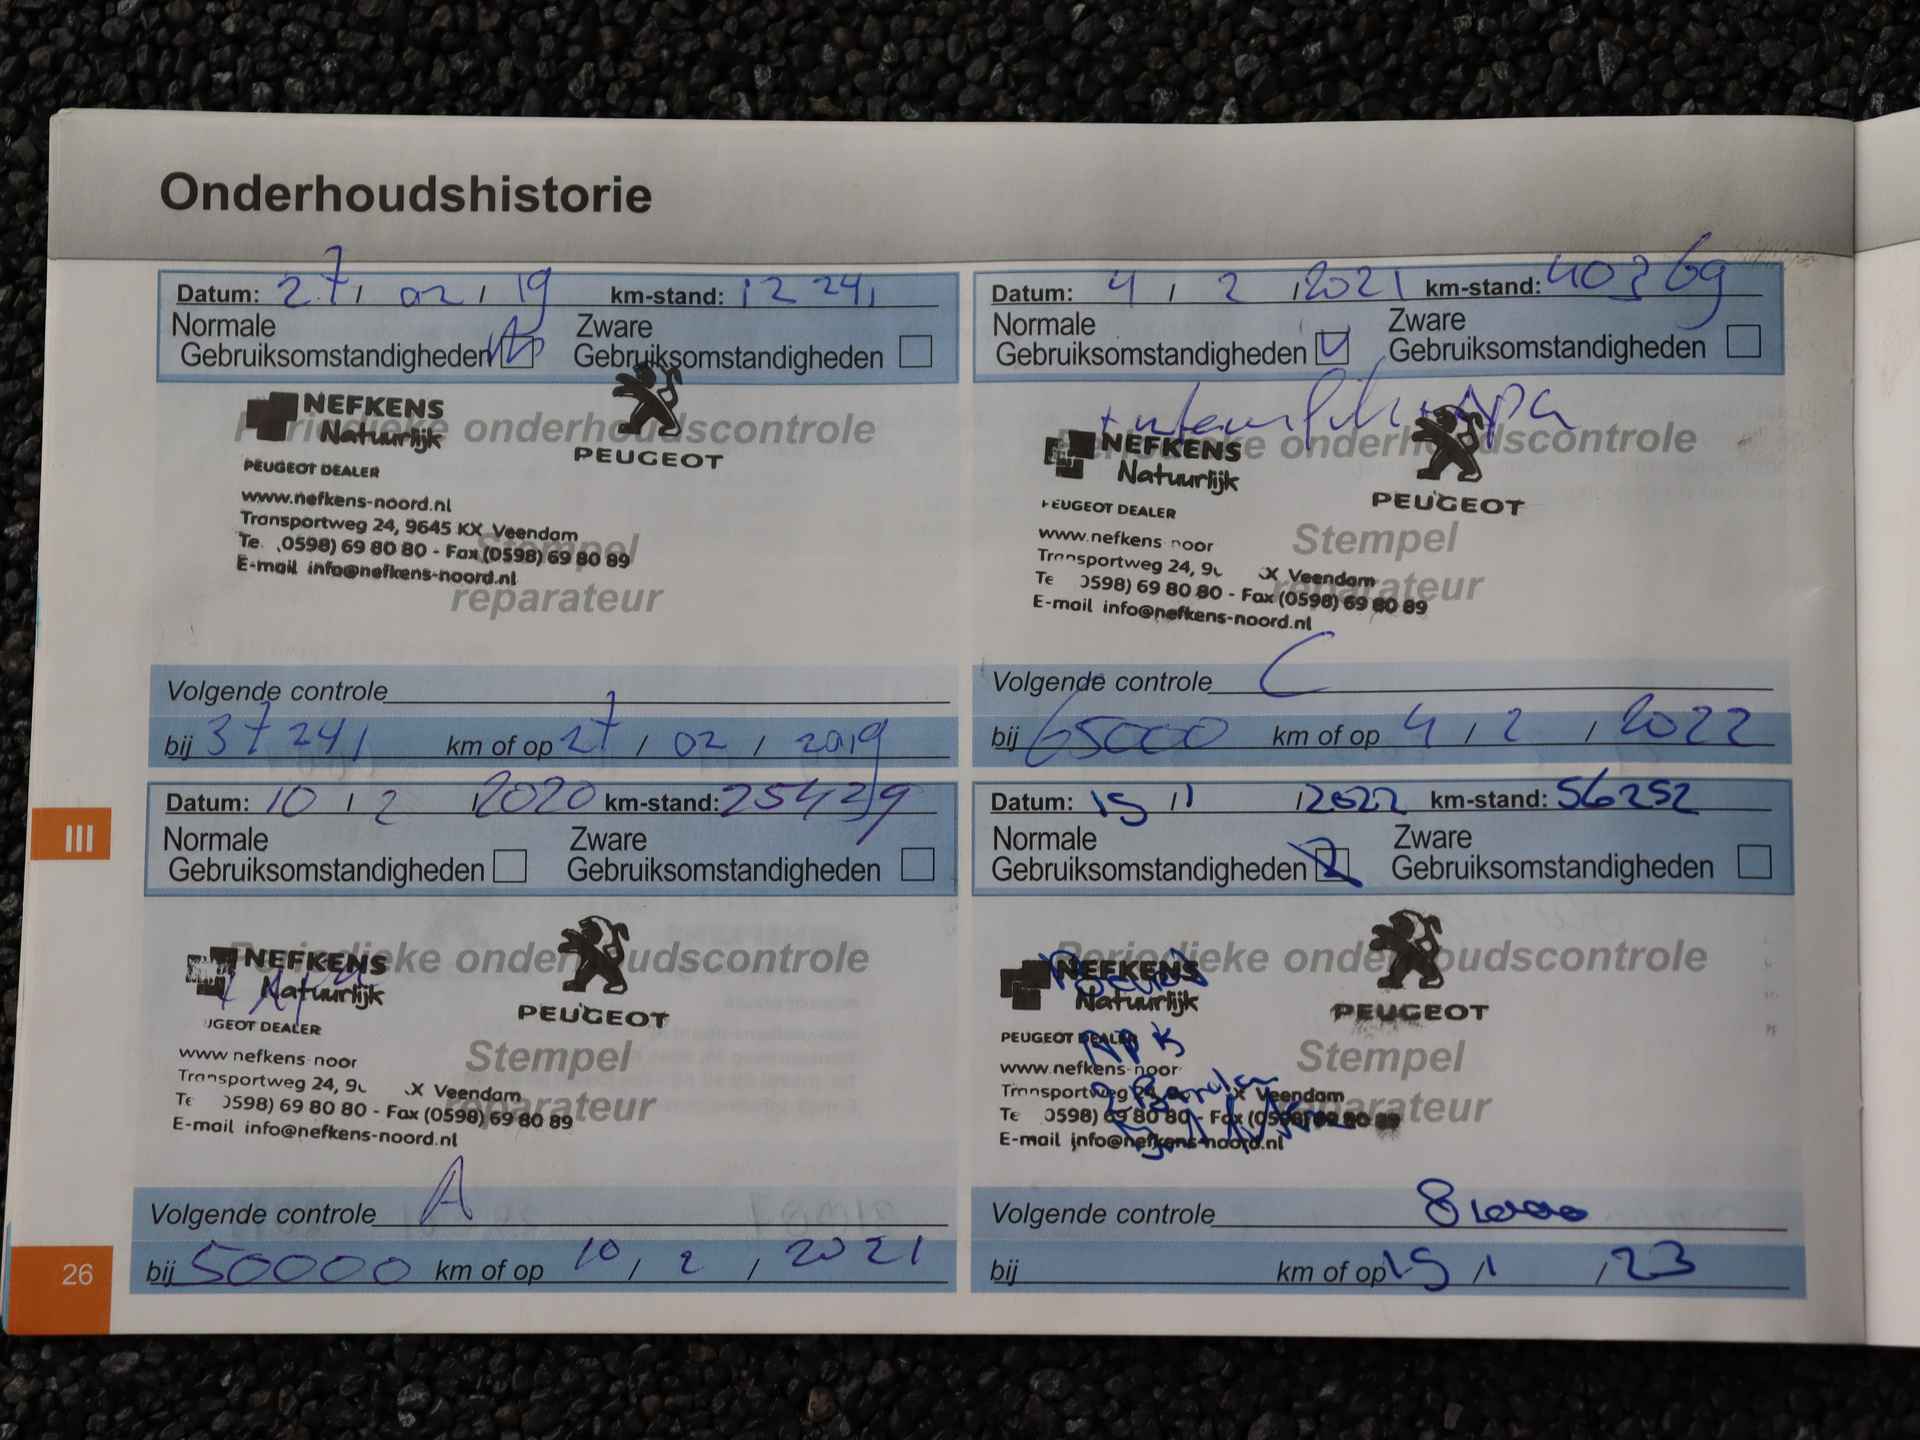 Onderhoudshistorie
Datum: 27 / 02 / 19 km-stand: 12241
Normale Zware
Gebruiksomstandigheden Gebruiksomstandigheden
NEFKENS
Natuurlijk
PEUGEOT
Periodieke onderhoudscontrole
PEUGEOT DEALER
www.nefkens-noord.nl
Transportweg 24, 9645 KX Veendam
Te. 0598) 69 80 80 - Fax (0598) 69 80 89
E-mail info@nefkens-noord.nl
Stempel
reparateur
Volgende controle
bij 37241 km of op 27 / 02 / 2019
Datum: 10 / 2 / 2020 km-stand: 25429
Normale Zware
Gebruiksomstandigheden Gebruiksomstandigheden
NEFKENS
Natuurlijk
PEUGEOT
Periodieke onderhoudscontrole
UGEOT DEALER
www nefkens noor
Transportweg 24, 9 X Veendam
Te 0598) 69 80 80 - Fax (0598) 69 80 89
E-mail info@nefkens-noord.nl
Stempel
reparateur
Volgende controle A
bij 50000 km of op 10 / 2 / 2021
Datum: 4 / 2 / 2021 km-stand: 40369
Normale Zware
Gebruiksomstandigheden Gebruiksomstandigheden
NEFKENS
Natuurlijk
PEUGEOT
Periodieke onderhoudscontrole
PEUGEOT DEALER
www.nefkens noor
Transportweg 24, 9 X Veendam
Te 0598) 69 80 80 - Fax (0598) 69 80 89
E-mail info@nefkens-noord.nl
Stempel
reparateur
Volgende controle C
bij 65000 km of op 4 / 2 / 2022
Datum: 15 / 1 / 2022 km-stand: 56252
Normale Zware
Gebruiksomstandigheden Gebruiksomstandigheden
NEFKENS
Natuurlijk
PEUGEOT
Periodieke onderhoudscontrole
PEUGEOT DEALER
APK
www.nefkens-noor
Transportweg 24, 9 X Veendam
Te 0598) 69 80 80 - Fax (0598) 69 80 89
E-mail info@nefkens-noord.nl
Stempel
reparateur
Volgende controle 81000
bij km of op 15 / 1 / 23
III
26